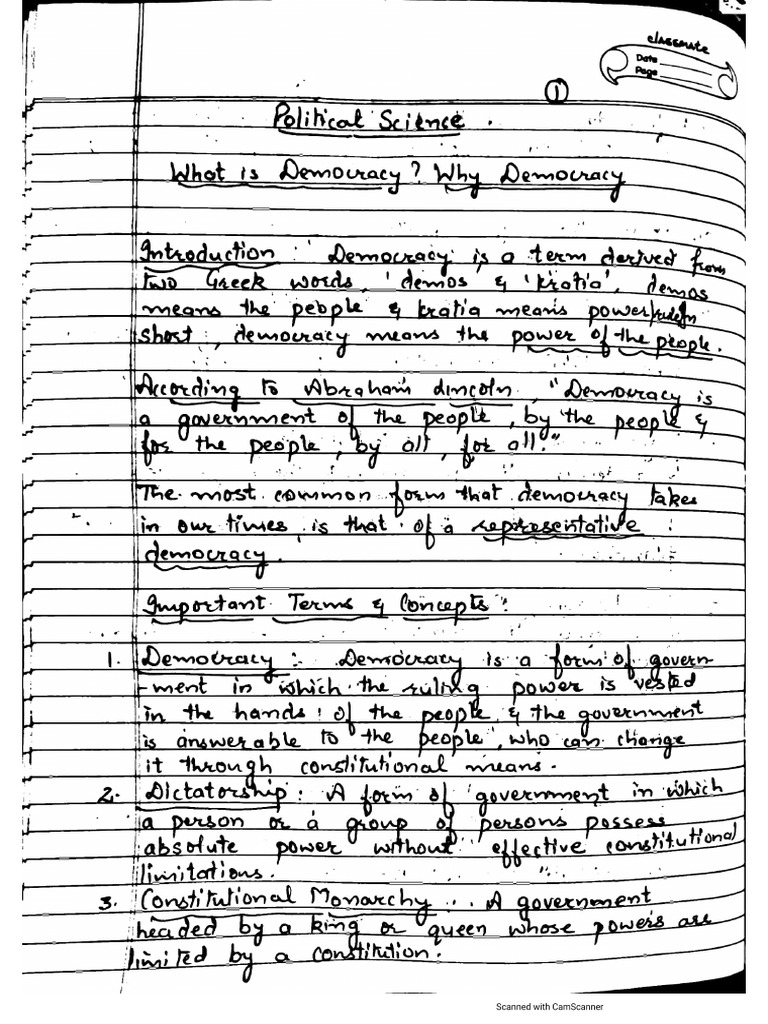 classmate
Date
Page
1
Political Science.
What is Democracy? Why Democracy
Introduction : Democracy is a term derived from
two Greek words, 'demos & 'kratia'. demos
means the people & kratia means power/rule/
short, democracy means the power of the people.
According to Abraham Lincoln, "Democracy is
a government of the people, by the people &
for the people, by all, for all."
The most common form that democracy takes
in our times, is that of a representative
democracy.
Important Terms & Concepts :
1. Democracy : Democracy is a form of govern-
-ment in which the ruling power is vested
in the hands of the people, & the government
is answerable to the people, who can change
it through constitutional means.
2. Dictatorship : A form of government in which
a person or a group of persons possess
absolute power without effective constitutional
limitations.
3. Constitutional Monarchy : A government
headed by a king or queen whose powers are
limited by a constitution.
Scanned with CamScanner